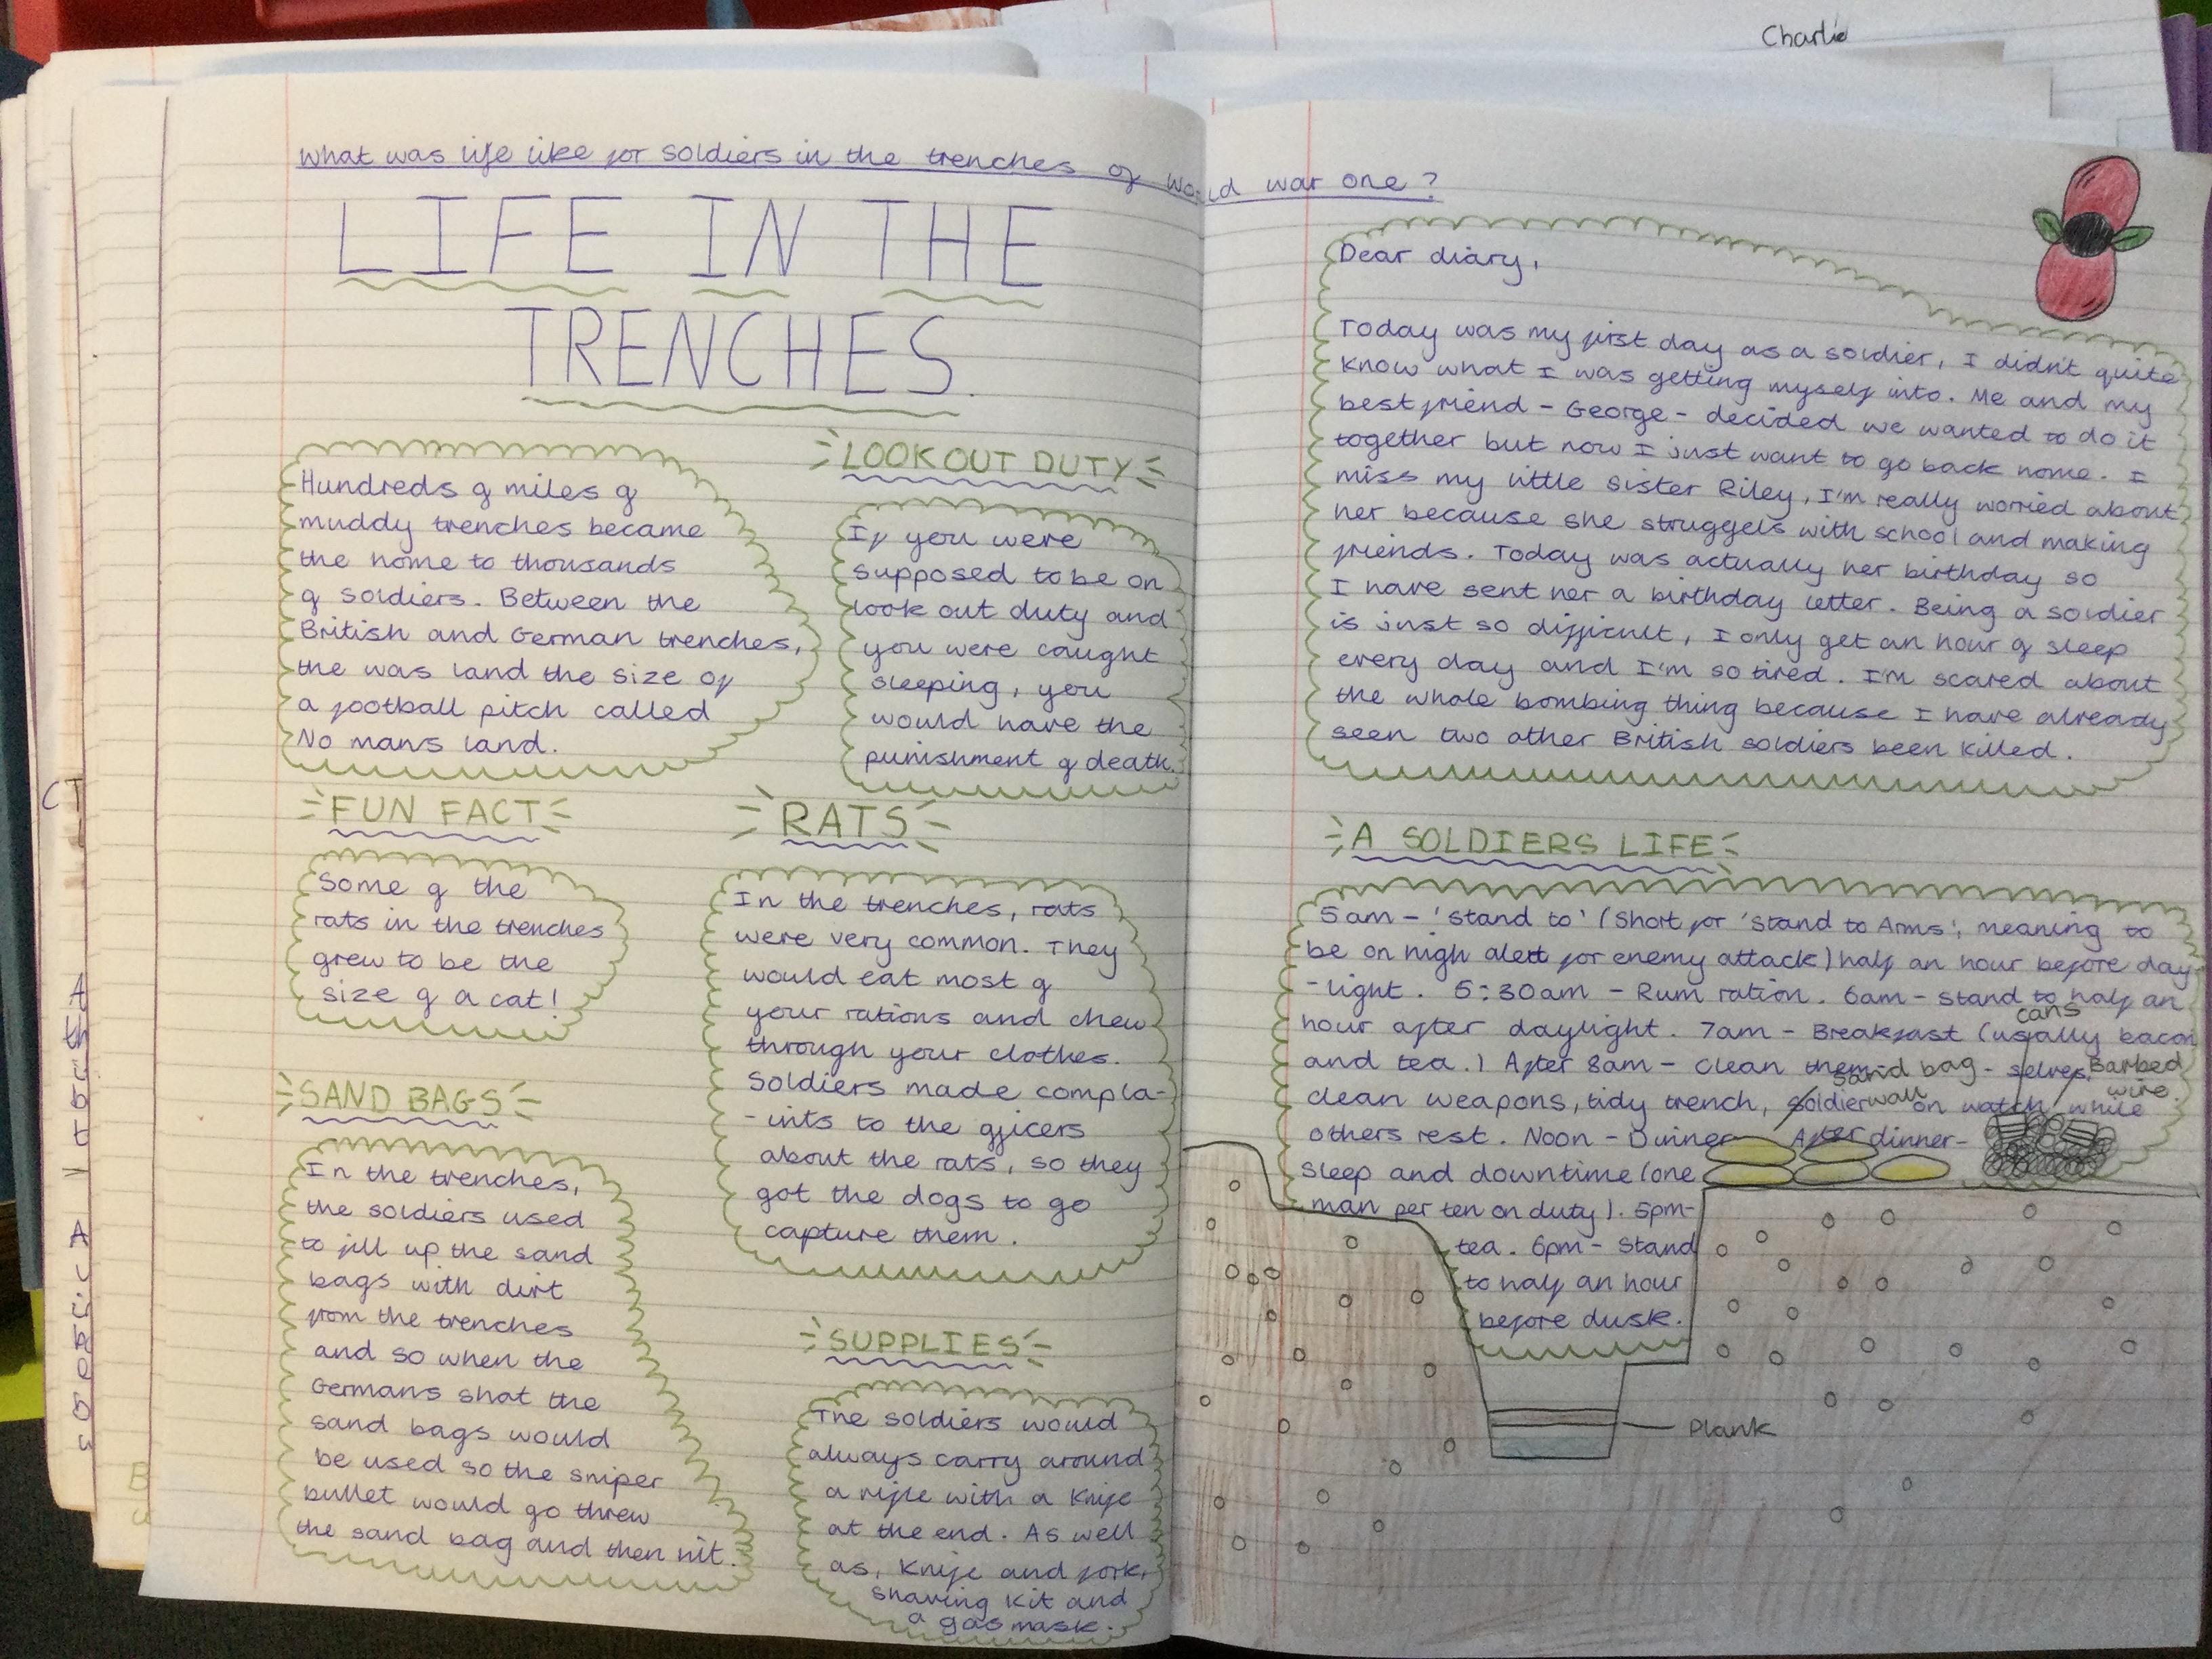 Charlie
What was life like for soldiers in the trenches of world war one?
LIFE IN THE
TRENCHES.
Hundreds of miles of
muddy trenches became
the home to thousands
of soldiers. Between the
British and German trenches,
the was land the size of
a football pitch called
No mans land.
LOOKOUT DUTY
If you were
supposed to be on
look out duty and
you were caught
sleeping, you
would have the
punishment of death.
FUN FACT
Some of the
rats in the trenches
grew to be the
size of a cat!
RATS
In the trenches, rats
were very common. They
would eat most of
your rations and chew
through your clothes.
Soldiers made compla-
-ints to the officers
about the rats, so they
got the dogs to go
capture them.
SAND BAGS
In the trenches,
the soldiers used
to fill up the sand
bags with dirt
from the trenches
and so when the
Germans shot the
sand bags would
be used so the sniper
bullet would go threw
the sand bag and then hit.
SUPPLIES
The soldiers would
always carry around
a rifle with a knife
at the end. As well
as, knife and fork,
shaving kit and
a gas mask.
Dear diary,
Today was my first day as a soldier, I didn't quite
know what I was getting myself into. Me and my
best friend - George - decided we wanted to do it
together but now I just want to go back home. I
miss my little sister Riley, I'm really worried about
her because she struggels with school and making
friends. Today was actually her birthday so
I have sent her a birthday letter. Being a soldier
is just so difficult, I only get an hour of sleep
every day and I'm so tired. I'm scared about
the whole bombing thing because I have already
seen two other British soldiers been killed.
A SOLDIERS LIFE
5am - 'stand to' (Short for 'Stand to Arms', meaning to
be on high alert for enemy attack) half an hour before day
-light. 5:30am - Rum ration. 6am - stand to half an
hour after daylight. 7am - Breakfast (usally bacon
and tea.) After 8am - Clean them - selves,
clean weapons, tidy trench, soldier on watch while
others rest. Noon - Dinner After dinner -
sleep and downtime (one
man per ten on duty). 5pm -
tea. 6pm - Stand
to half an hour
before dusk.
cans
Sand bag
wall
Barbed
wire
Plank